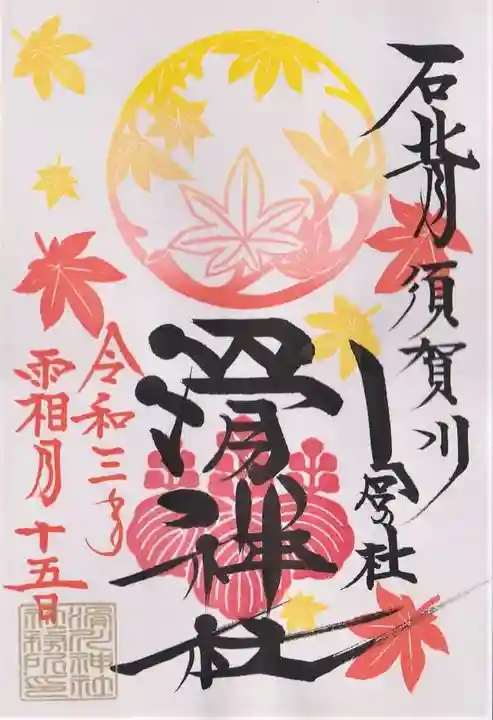 石背須賀川
滑神社
令和三年
霜月十五日
滑川神社
社務所印